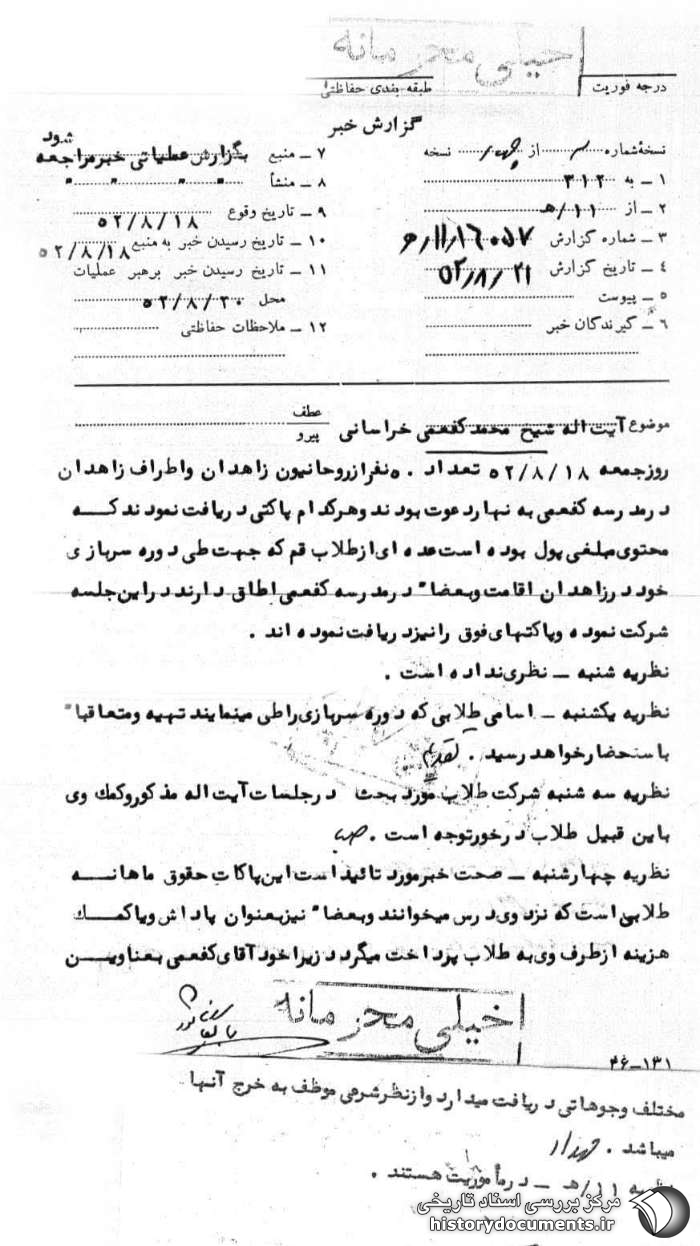 خیلی محرمانه
درجه فوریت
طبقه بندی حفاظتی
گزارش خبر
نسخه شماره از چهار نسخه
۱ ـ به ۳۱۲
۲ ـ از ۱۱/هـ
۳ ـ شماره گزارش ۱۶۰۵۷/۱۱هـ
۴ ـ تاریخ گزارش ۵۲/۸/۲۱
۵ ـ پیوست
۶ ـ گیرندگان خبر
۷ ـ منبع بگزارش عملیاتی خبر مراجعه شود
۸ ـ منشأ " " " "
۹ ـ تاریخ وقوع ۵۲/۸/۱۸
۱۰ ـ تاریخ رسیدن خبر به منبع ۵۲/۸/۱۸
۱۱ ـ تاریخ رسیدن خبر برهبر عملیات
محل ۵۲/۸/۲۰
۱۲ ـ ملاحظات حفاظتی
موضوع آیت اله شیخ محمد کفعمی خراسانی
عطف
پیرو
روز جمعه ۵۲/۸/۱۸ تعداد ۵۰ نفر از روحانیون زاهدان واطراف زاهدان
در مدرسه کفعمی به نهار دعوت بودند وهر کدام پاکتی دریافت نمودند کــه
محتوی مبلغی پول بوده است عده ای از طلاب قم که جهت طی دوره سربازی
خود در زاهدان اقامت وبعضا" در مدرسه کفعمی اطاق دارند در این جلسه
شرکت نموده وپاکتهای فوق را نیز دریافت نموده اند .
نظریه شنبه ـ نظری نداده است .
نظریه یکشنبه ـ اسامی طلابی که دوره سربازی را طی مینمایند تهیه ومتعاقبا"
باستحضار خواهد رسید .
نظریه سه شنبه شرکت طلاب مورد بحث در جلسات آیت اله مذکور وکمک وی
باین قبیل طلاب درخور توجه است .
نظریه چهارشنبه ـ صحت خبر مورد تائید است این پاکات حقوق ماهانـــه
طلابی است که نزد وی درس میخوانند وبعضا" نیز بعنوان پاداش ویا کمــک
هزینه از طرف وی به طلاب پرداخت میگردد زیرا خود آقای کفعمی بعناویــن
خیلی محرمانه
۱۳۱-۳۶
مختلف وجوهاتی دریافت میدارد واز نظر شرعی موظف به خرج آنها
میباشد .
نظریه ۱۱/هـ ـ در مأموریت هستند .
مرکز بررسی اسناد تاریخی
historydocuments.ir